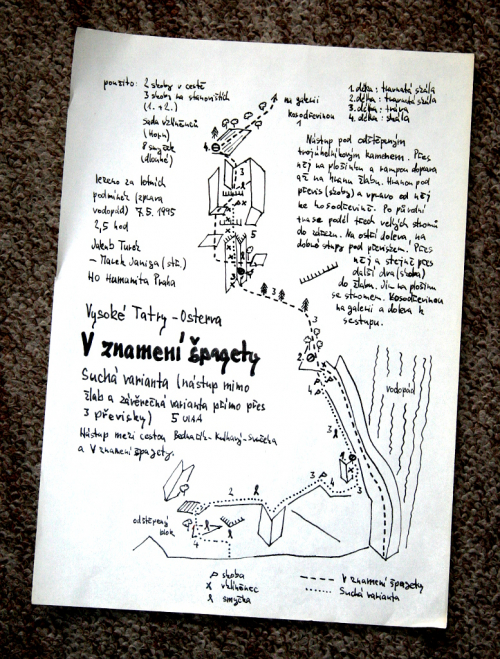 použito: 2 skoby v cestě
3 skoby na stanovištích
(1. + 2.)
sada vklíněnců
(Horn)
8 smyček
(dlouhé)
lezeno za letních
podmínek (zprava
vodopád) 7.5.1995
2,5 hod
Jakub Turek
- Marek Janiga (stř.)
HO Humanita Praha
na galerii
kosodřevinou
1.délka: travnatá skála
2.délka: travnatá skála
3.délka: tráva
4.délka: skála
Nástup pod odštěpeným
trojúhelníkovým kamenem. Přes
něj na plošinku a rampou doprava
až na hranu žlabu. Hranou pod
převis (skoby) a vpravo od něj
ke kosodřevině. Po původní
trase podél třech velkých stromů
do zářezu. Na ostří doleva, na
dobré stupy pod převisem. Přes
něj a stejně přes
další dva (skoba)
do žlabu. Jím na plošinu
se stromem. Kosodřevinou
na galerii a doleva k
sestupu.
Vysoké Tatry - Osterva
V znamení špagety
Suchá varianta (nástup mimo
žlab a závěrečná varianta přímo přes
3 převisky) 5 UIAA
Nástup mezi cestou
a V znamení špagety.
vodopád
odštěpený
blok
skoba
vklíněnec
smyčka
V znamení špagety
Suchá varianta